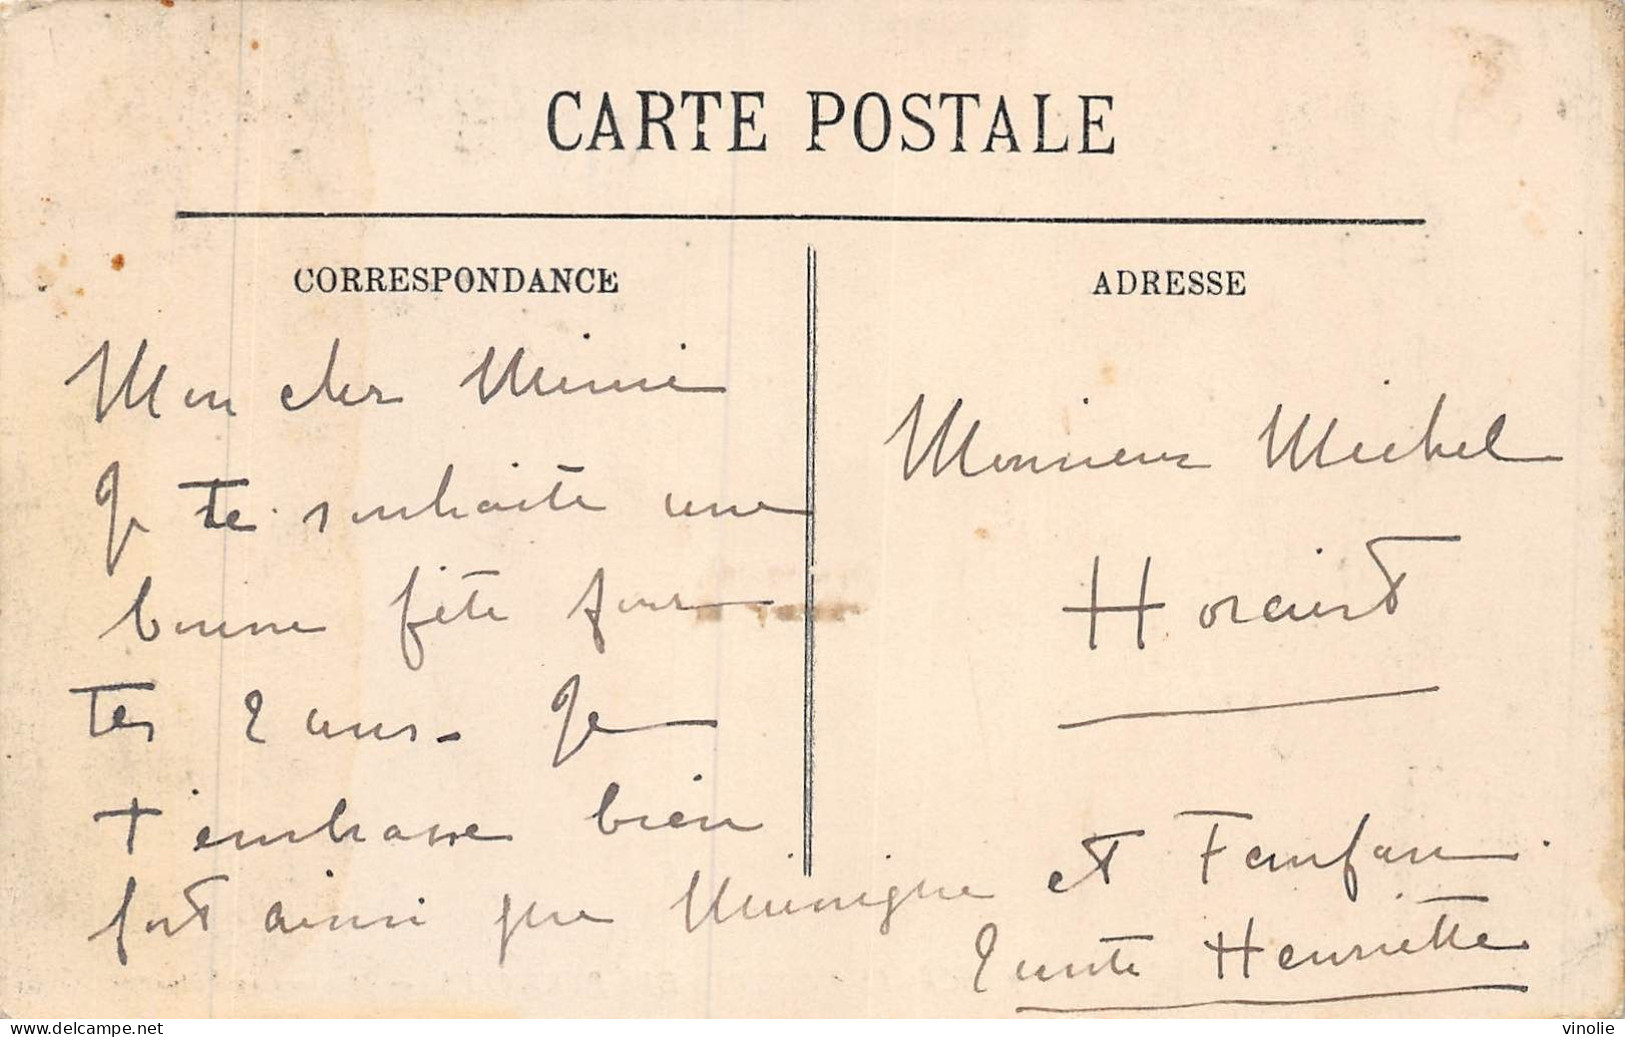 CARTE POSTALE
CORRESPONDANCE
ADRESSE
Mon cher Mimi
Je te souhaite une
bonne fête pour
tes 2 ans. Je
t'embrasse bien
fort ainsi que et Fanfan.
Tante Henriette
Monsieur Michel
vinolie